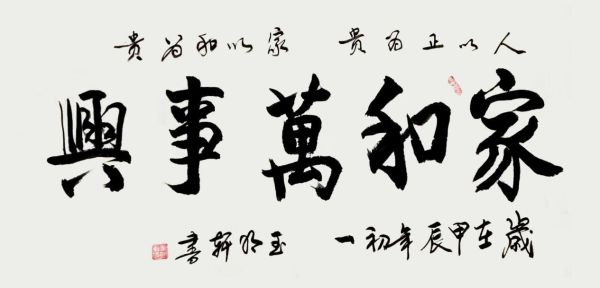 人以正为贵 家以和为贵
家和萬事興
歲在甲辰年初一 玉明軒書